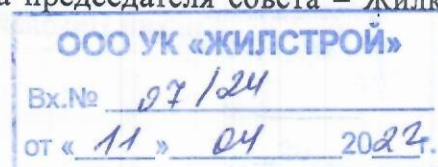 председателя совета – Жилк
ООО УК «ЖИЛСТРОЙ»
Вх.№ 07/24
от « 11 » 04 2022г.